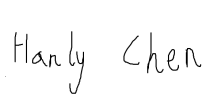 Hanly Chen